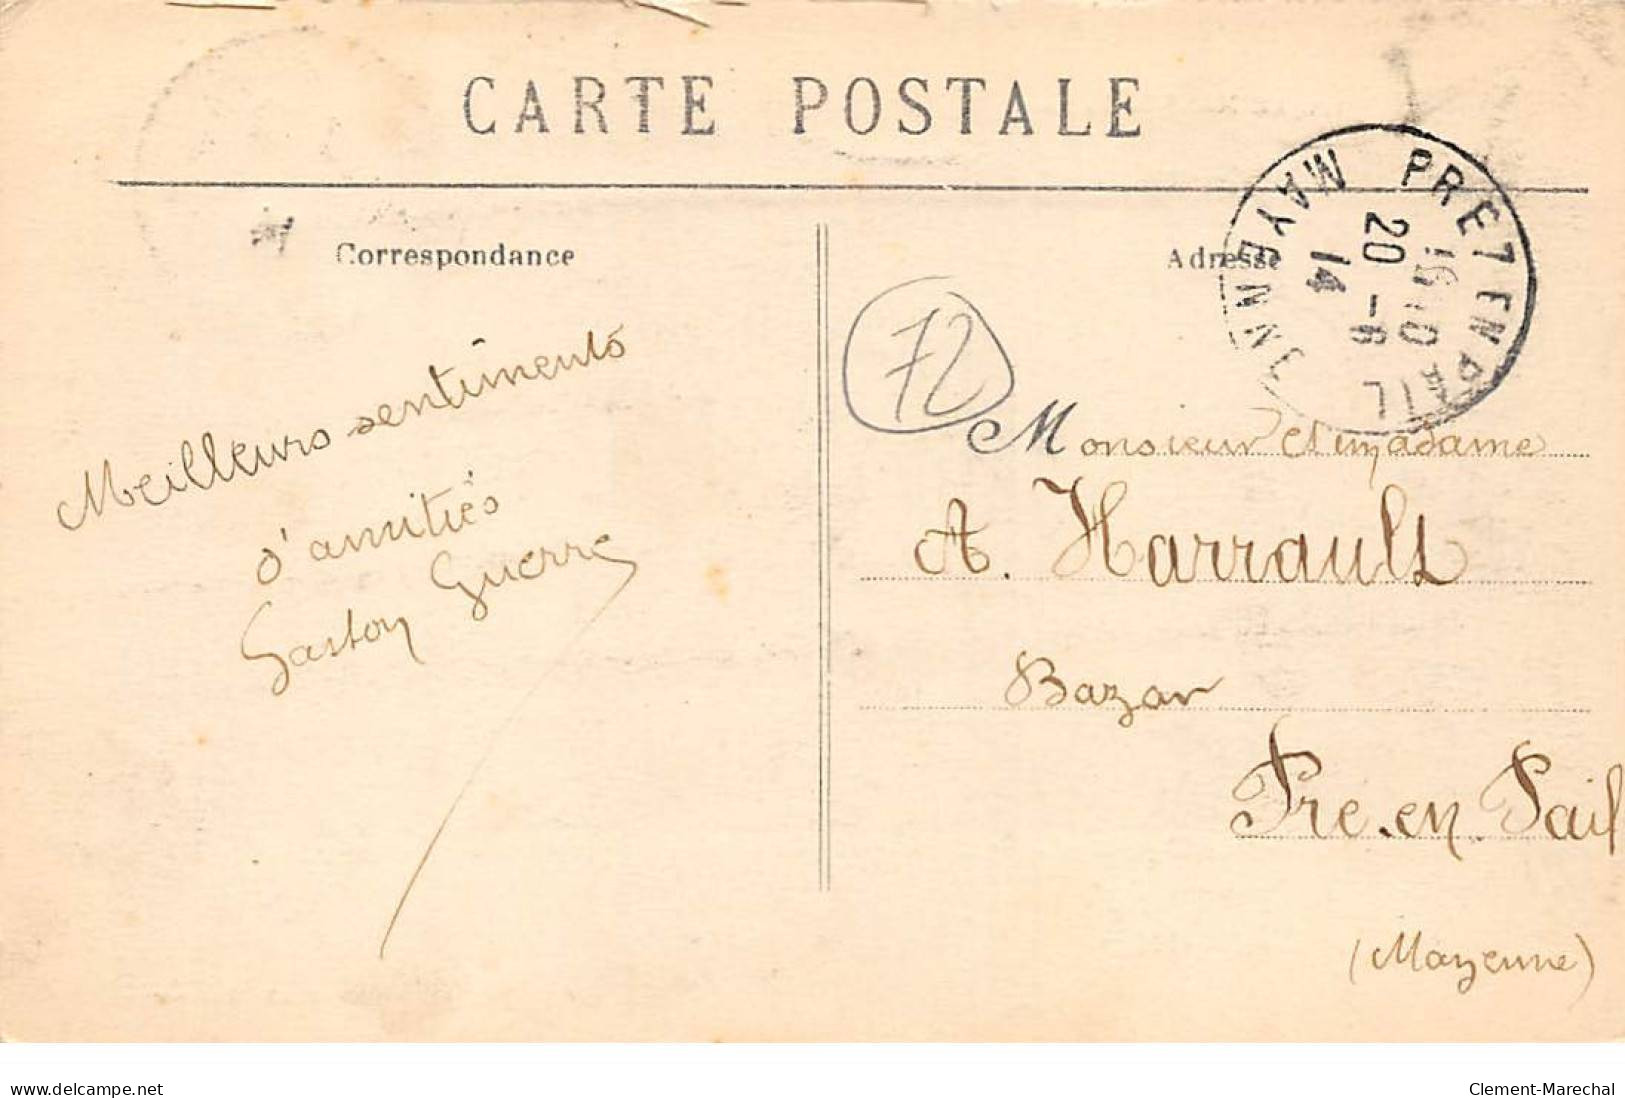 CARTE POSTALE
PRE EN PAIL
MAYENNE
20 -6
14
Correspondance
Adresse
72
Meilleurs sentiments
d'amitiés
Gaston Guerre
Monsieur et madame
A. Harrault
Bazar
Pré.en.Pail
(Mayenne)
www.delcampe.net
Clement-Marechal